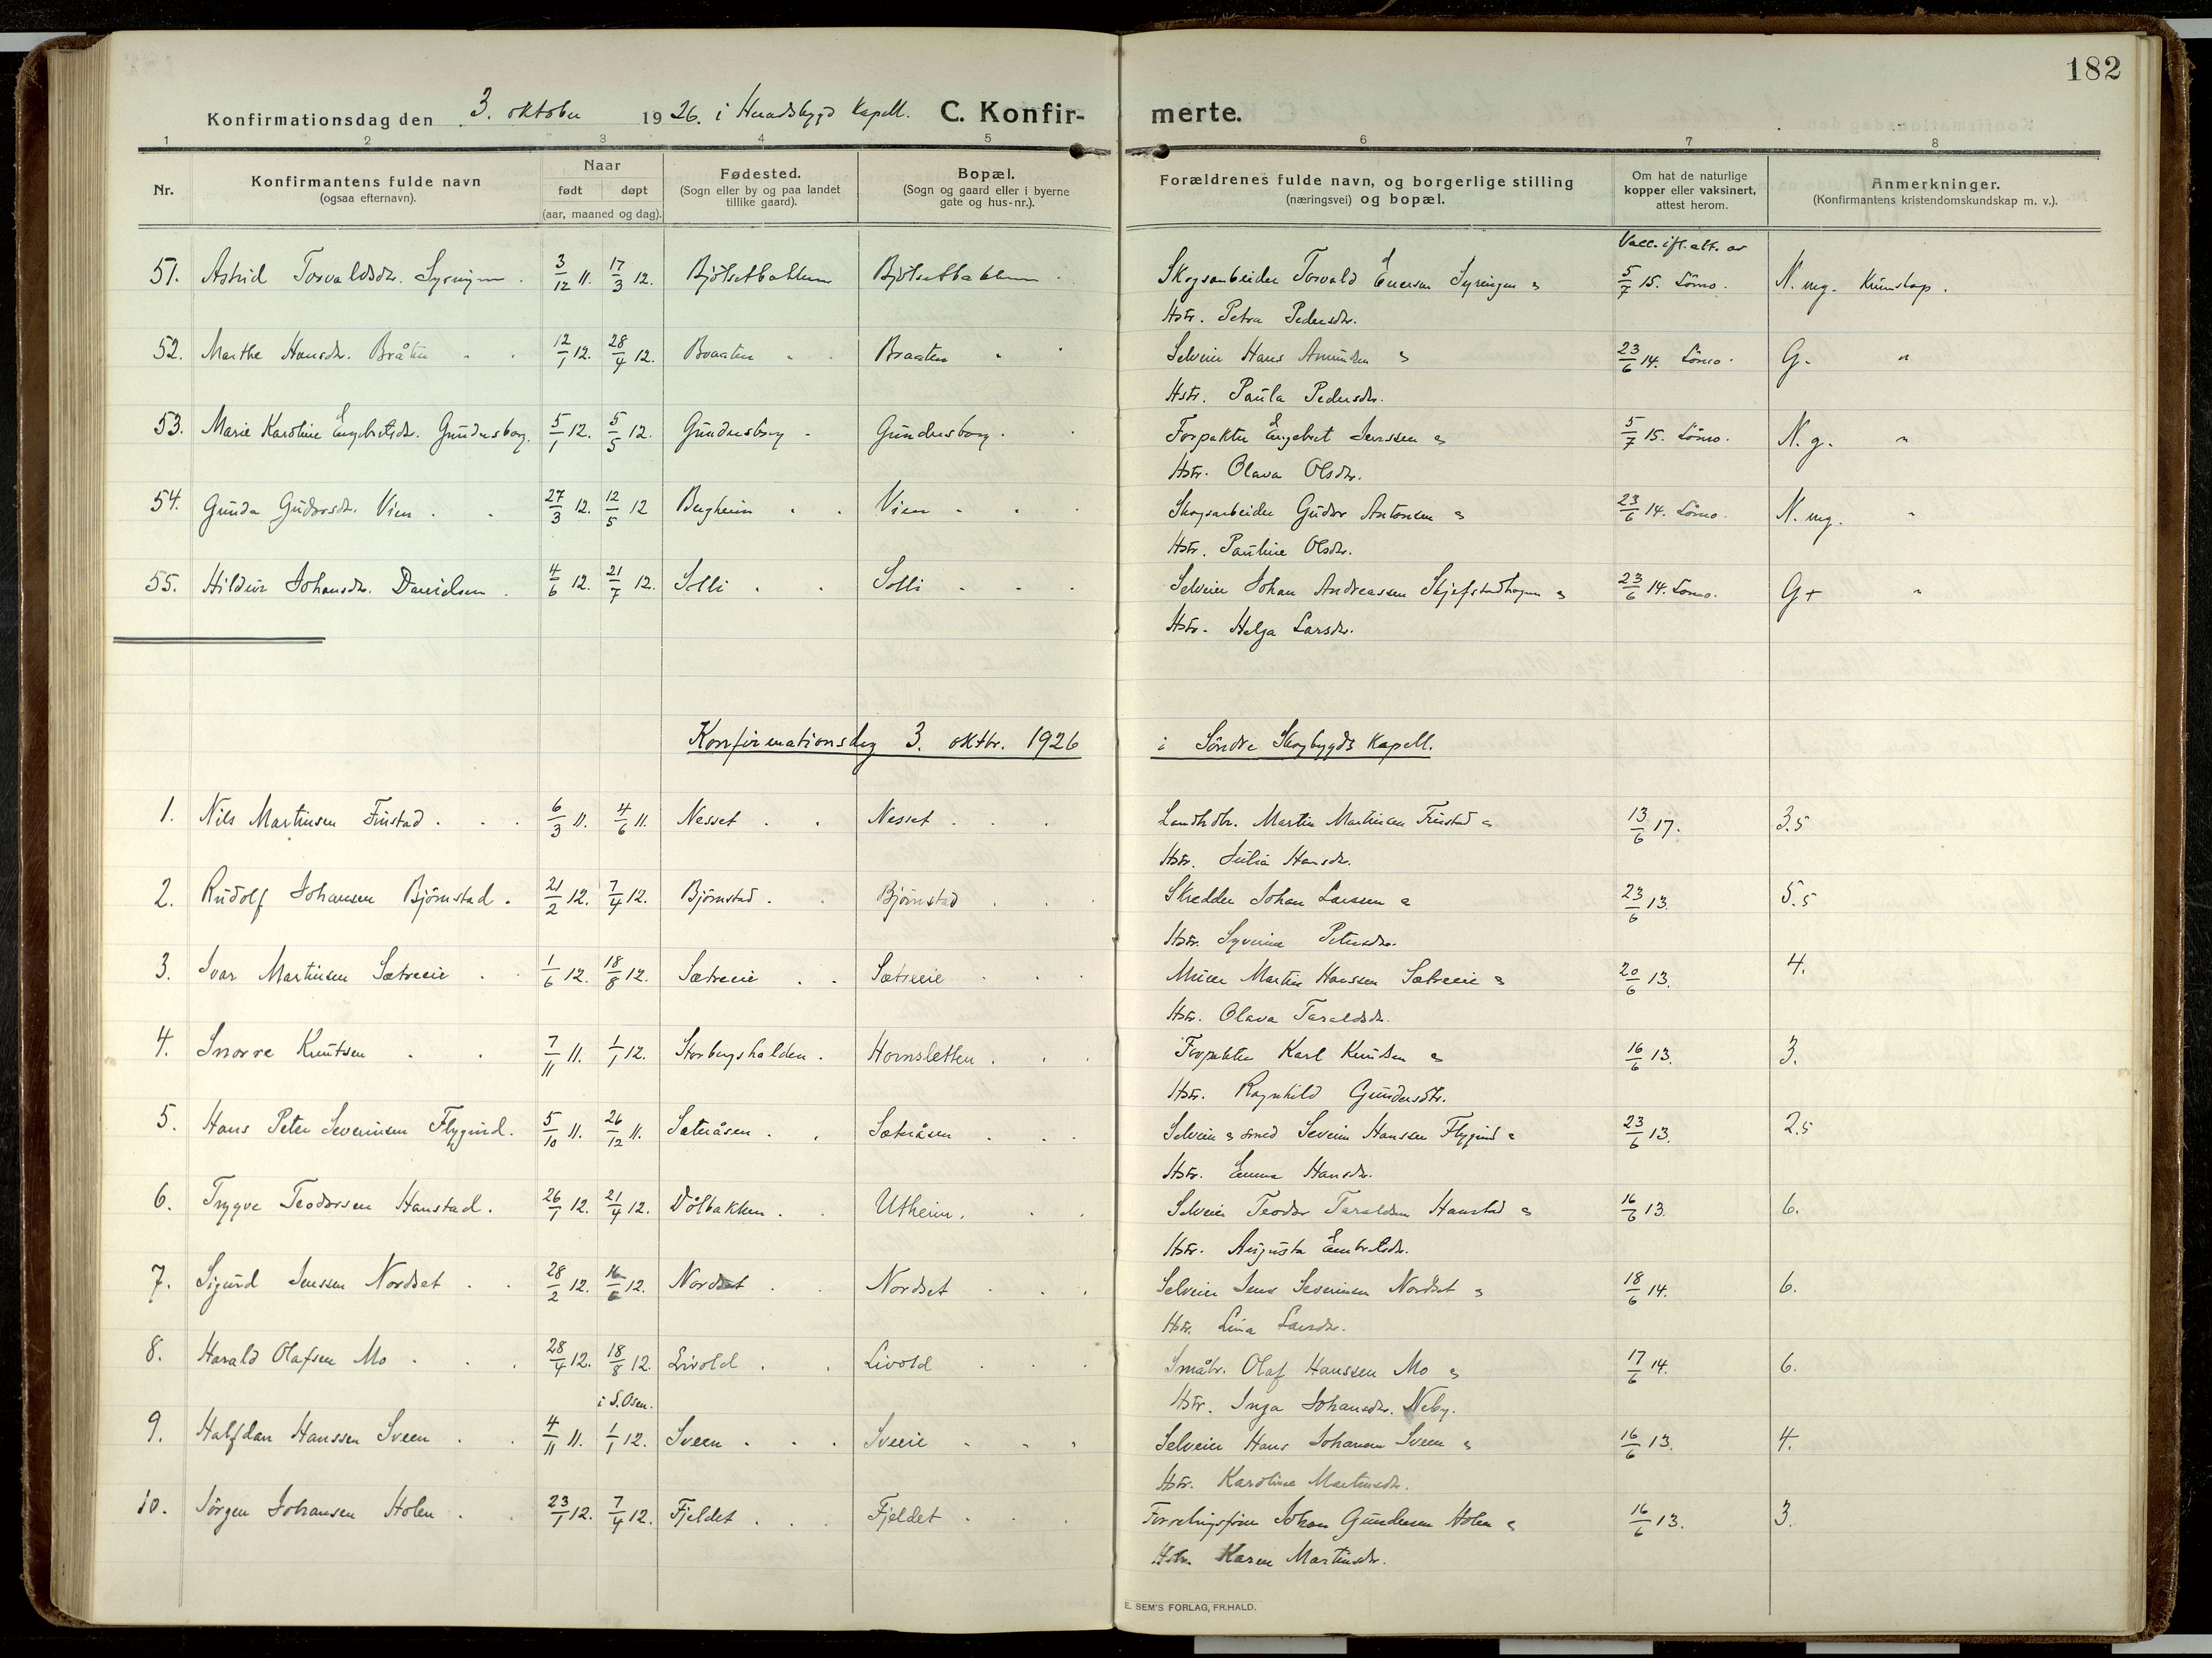 182
Konfirmationsdag den 3. oktober 1926. i Heradsbygd Kapell. C. Konfirmerte.
1 2 3 4 5 6 7 8
Nr. Konfirmantens fulde navn (ogsaa efternavn). Naar født døpt (aar, maaned og dag). Fødested. (Sogn eller by og paa landet tillike gaard). Bopæl. (Sogn og gaard eller i byerne gate og hus-nr.). Forældrenes fulde navn, og borgerlige stilling (næringsvei) og bopæl. Om hat de naturlige kopper eller vaksinert, attest herom. Anmerkninger. (Konfirmantens kristendomskundskap m. v.).
Vacc. ifl. att. av
51. Astrid Torvaldsdr. Syringen. 3/12 11. 17/3 12. Bjölsetbakken Bjölsetbakken. Skogsarbeider Torvald Enersen Syringen & 5/7 15. Lömo. N. mg. Kunnskap.
Hstr. Petra Pedersdr.
52. Marthe Hansdr. Bråten 12/1 12. 28/4 12. Braaten Braaten Selveier Hans Amundsen & 23/6 14. Lömo. G. "
Hstr. Paula Pedersdr.
53. Marie Karoline Engebretsdr. Gundersborg. 5/1 12. 5/5 12. Gundersborg Gundersborg. Forpakter Engebret Jenssen & 5/7 15. Lömo. N. g. "
Hstr. Olava Olsdr.
54. Gunda Gudorsdr. Vien. 27/3 12. 12/5 12 Bergheim Vien Skogsarbeider Gudor Antonsen & 23/6 14. Lömo. N. mg. "
Hstr. Pauline Olsdr.
55. Hildur Johansdr. Danielsen. 4/6 12. 21/7 12. Solli Solli Selveier Johan Andreassen Skjefstadhagen & 23/6 14. Lömo. G+ "
Hstr. Helga Larsdr.
Konfirmationsdag 3. oktbr. 1926 i Söndre Skogbygds Kapell.
1. Nils Martinsen Finstad. 6/3 11. 4/6 11. Nesset Nesset Landhdlr. Martin Martinsen Finstad & 13/6 17. 3.5
Hstr. Julia Hansdr.
2. Rudolf Johansen Björnstad. 21/2 12. 7/4 12. Björnstad. Björnstad Skredder Johan Larssen & 23/6 13. 5.5
Hstr. Syverine Petersdr.
3. Ivar Martinsen Sætreeie 1/6 12. 18/8 12. Sætreeie Sætreeie Murer Martin Hanssen Sætreeie & 20/6 13. 4.
Hstr. Olava Taraldsdr.
4. Snorre Knutsen 7/11 11. 1/1 12. Storbergshalden. Hornsletten. Forpakter Karl Knudsen & 16/6 13. 3.
Hstr. Ragnhild Gundersdtr.
5. Hans Peter Severinsen Flygind. 5/10 11. 26/12 11. Sæteråsen. Sæteråsen Selveier & smed Severin Hanssen Flygind & 23/6 13. 2.5
Hstr. Emma Hansdr.
6. Trygve Teodorssen Hanstad. 26/1 12. 21/4 12. Dölbakken. Utheim. Selveier Teodor Taraldsen Hanstad & 16/6 13. 6.
Hstr. Augusta Embretsdr.
7. Sigurd Jenssen Nordset 28/2 12. 16/6 12. Nordset Nordset Selveier Jens Severinsen Nordset & 18/6 14. 6.
Hstr. Lina Larsdr.
8. Harald Olafsen Mo 28/4 12. 18/8 12. Livold Livold Småbr. Olaf Hanssen Mo & 17/6 14. 6.
i S. Osen. Hstr. Inga Johansdr. Neby.
9. Halfdan Hanssen Sveen 4/11 11. 1/1 12. Sveen Sveeie Selveier Hans Johansen Sveen & 16/6 13. 4.
Hstr. Karoline Martinsdr.
10. Jörgen Johansen Holen 23/1 12. 7/4 12. Fjeldet Fjeldet Johan Gundersen Holen & 16/6 13. 3.
Hstr. Karen Martinsdr.
E. SEM'S FORLAG, FR.HALD.